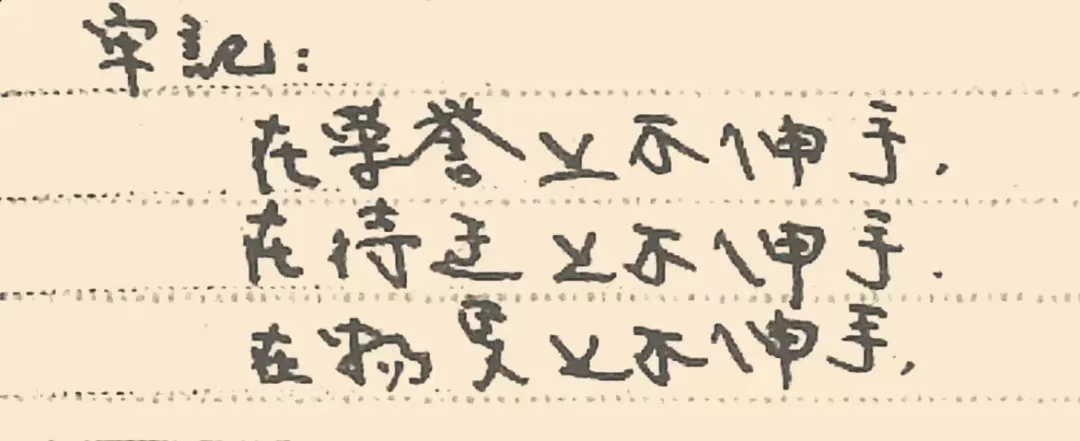 牢記:
在荣誉上不伸手.
在待迂上不伸手.
在物貭上不伸手.